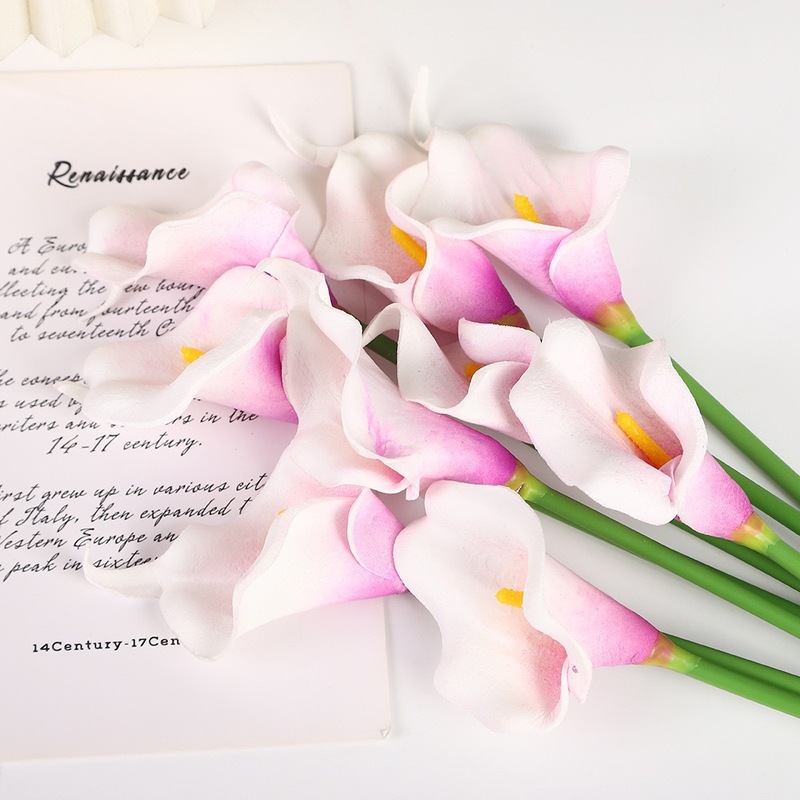 Renaissance
A Euro
and cu
llecting the ew bour
and from ourteenth
to seventeenth C
he concep
s used by
writers and rs in the
14-17 century.
irst grew up in various cit
f Italy, then expanded t
Western Europe an
peak in sixtee
14Century-17Cen